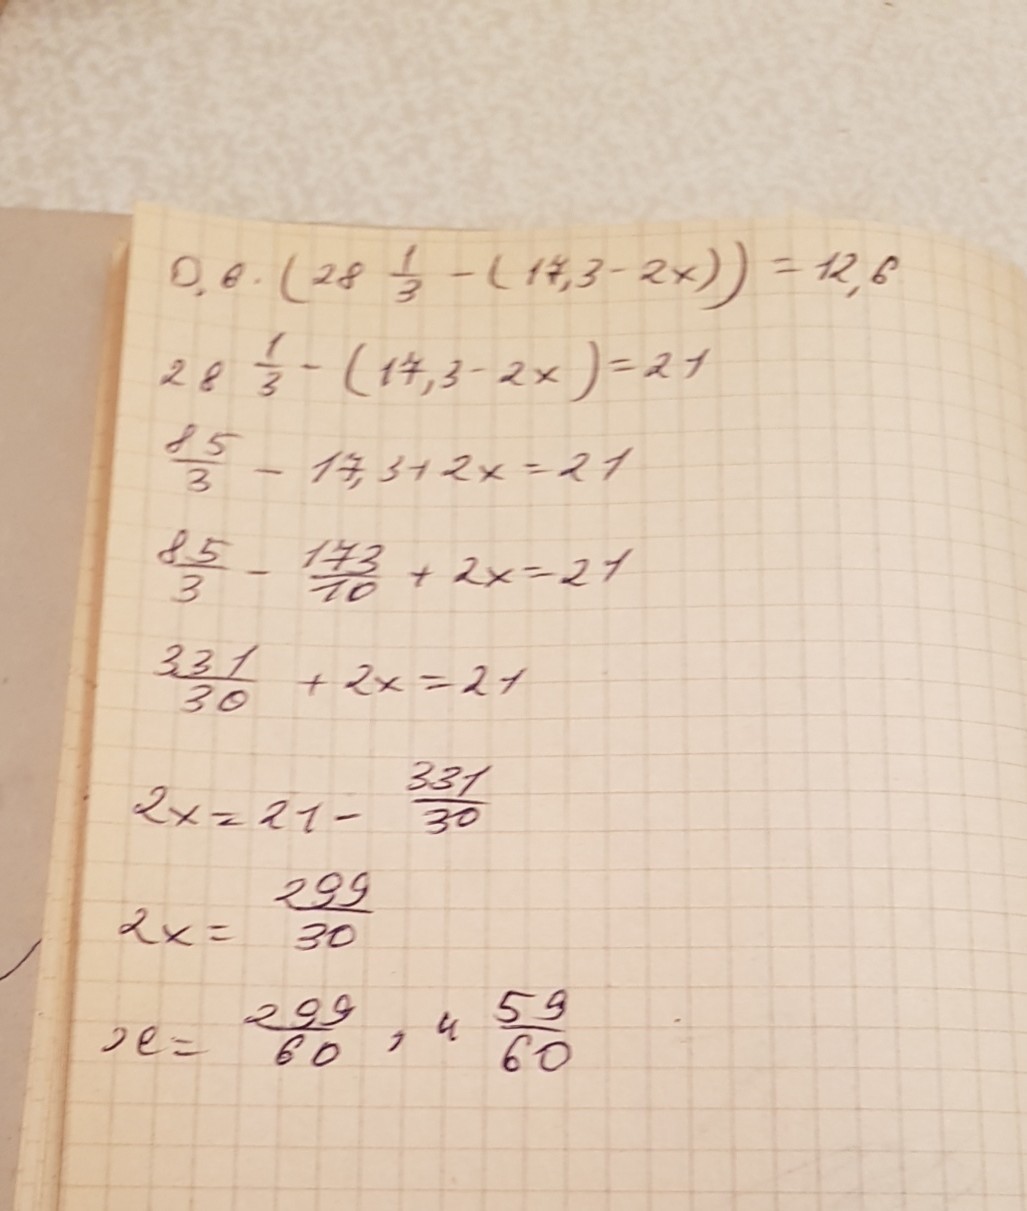 0,6 · (28 1/3 - (17,3 - 2x)) = 12,6
28 1/3 - (17,3 - 2x) = 21
85/3 - 17,3 + 2x = 21
85/3 - 173/10 + 2x = 21
331/30 + 2x = 21
2x = 21 - 331/30
2x = 299/30
x = 299/60 , 4 59/60